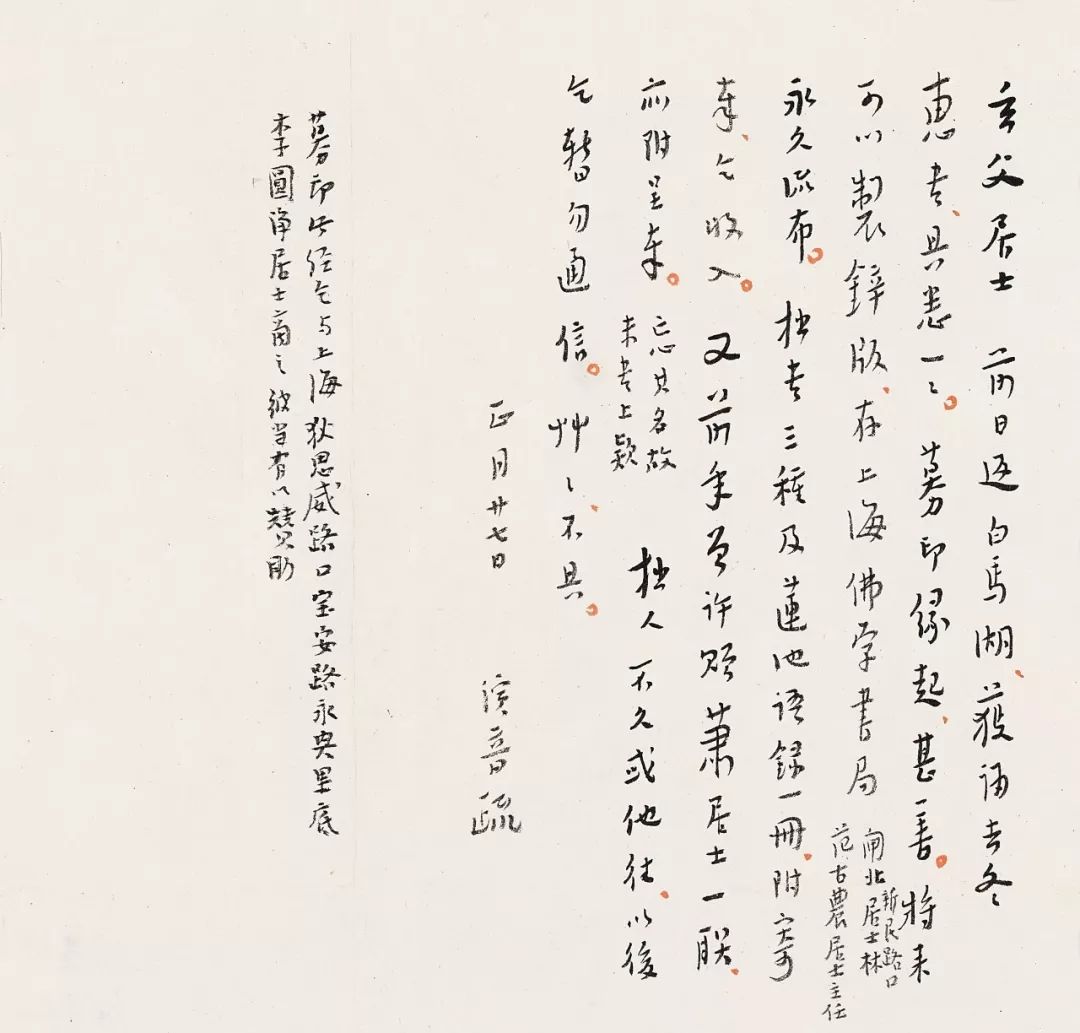 玄父居士 前日返白馬湖、獲誦去冬
惠書、具悉一〻。募印緣起、甚善。將来
可以製鋅版、存上海佛学書局
閘北新民路口居士林
范古農居士主任
永久流布。拙書三種及蓮池語録一冊、附寄
奉、乞收入。又前年曾許贈蕭居士一联、
茲附呈奉。
忘其名故
未書上款
拙人不久或他往、以後
乞暫勿通信。艸〻、不具。
正月廿七日 演音疏
募印此經乞与上海狄思威路口宝安路永興里底
李圓淨居士商之彼当有以贊助